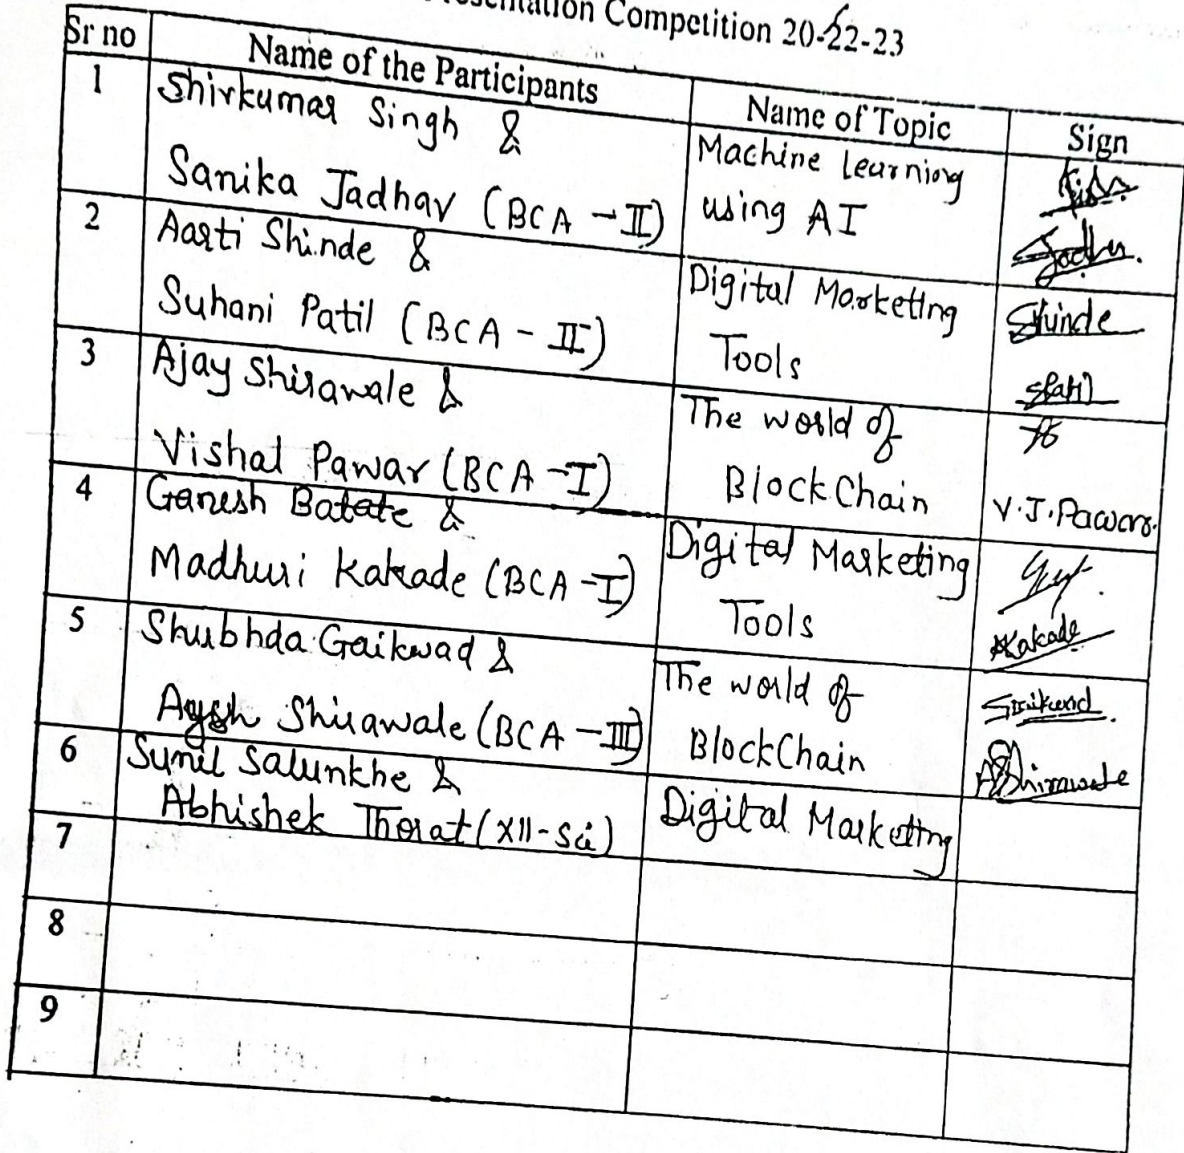 Presentation Competition 2022-23
Sr no Name of the Participants Name of Topic Sign
1 Shivkumar Singh &
Sanika Jadhav (BCA - II)
Machine Learning
using AI
2 Aarti Shinde &
Suhani Patil (BCA - II)
Digital Marketing
Tools
Shinde
SPatil
3 Ajay Shirawale &
Vishal Pawar (BCA - I)
The world of
BlockChain
V.J.Pawar.
4 Ganesh Batate &
Madhuri Kakade (BCA - I)
Digital Marketing
Tools
Kakade
5 Shubhda Gaikwad &
Shirawale (BCA - III)
The world of
BlockChain
Gaikwad
AShirawale
6 Sunil Salunkhe &
Abhishek Thorat (XII-Sci)
Digital Marketing
7
8
9